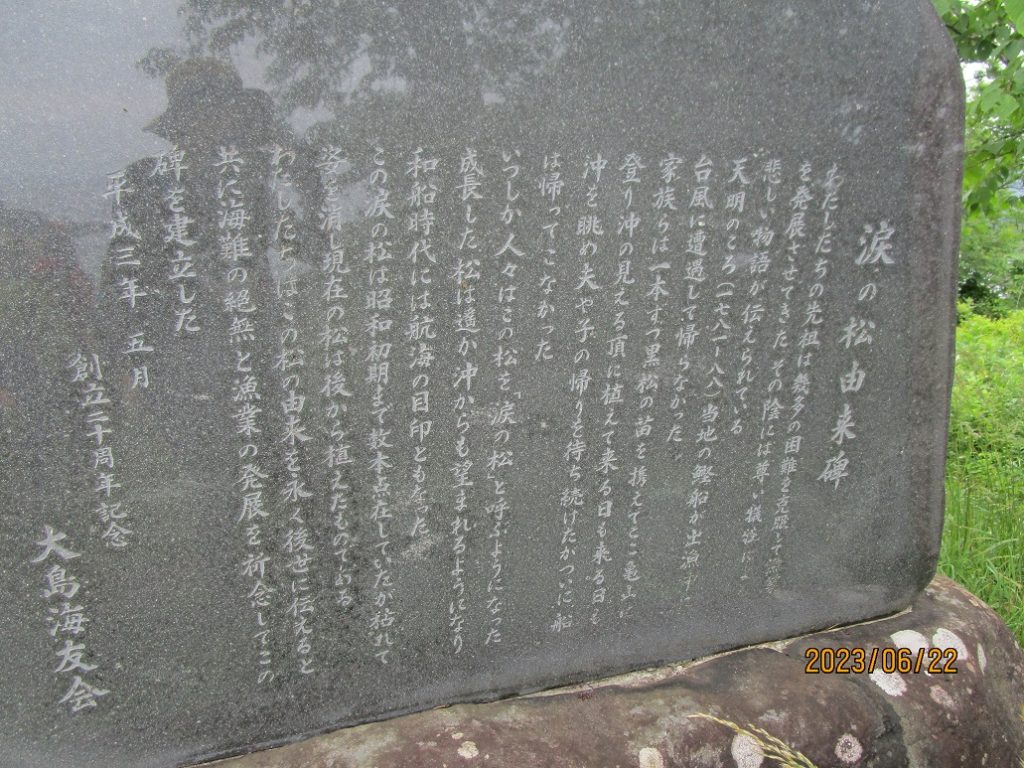 涙の松由来碑
わたしたちの先祖は幾多の困難を克服して漁業
を発展させてきた その陰には尊い犠牲による
悲しい物語が伝えられている
天明のころ(一七八一-八八)当地の鰹船が出漁中
台風に遭遇して帰らなかった
家族らは一本ずつ黒松の苗を携えてここ亀山に
登り沖の見える頂に植えて来る日も来る日も
沖を眺め夫や子の帰りを待ち続けたがついに船
は帰ってこなかった
いつしか人々はこの松を「涙の松」と呼ぶようになった
成長した松は遥か沖からも望まれるようになり
和船時代には航海の目印ともなった
この涙の松は昭和初期まで数本点在していたが枯れて
姿を消し現在の松は後から植えたものである
わたしたちはこの松の由来を永く後世に伝えると
共に海難の絶無と漁業の発展を祈念してこの
碑を建立した
平成三年 五月
創立二十周年記念
大島海友会
2023/06/22